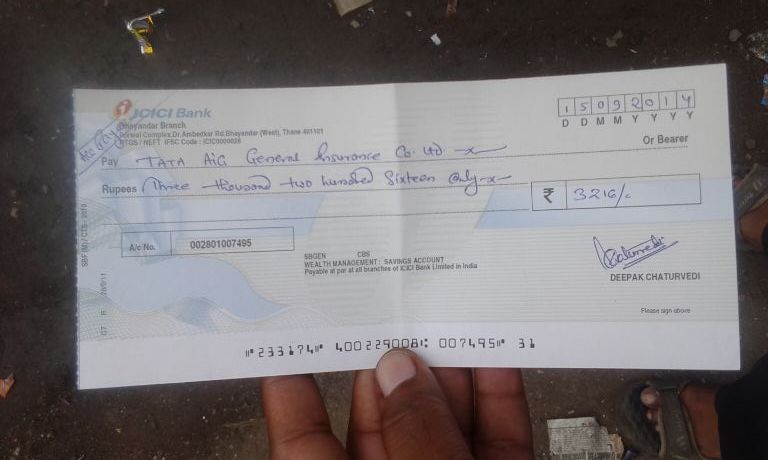 ICICI Bank
Bhayandar Branch
Complex,Dr.Ambedkar Rd,Bhayandar (West), Thane 401101
RTGS / NEFT IFSC Code : ICIC0000028
15092014
D D M M Y Y Y Y
Or Bearer
Pay TATA AIG General Insurance Co. Ltd -x-
Rupees Three thousand two hundred Sixteen only -x-
₹ 3216/-
A/c No. 002801007495
SBGEN CBS
WEALTH MANAGEMENT : SAVINGS ACCOUNT
Payable at par at all branches of ICICI Bank Limited in India
Chaturvedi
DEEPAK CHATURVEDI
Please sign above
⑈233174⑈ 400229008⑆ 007495⑈ 31